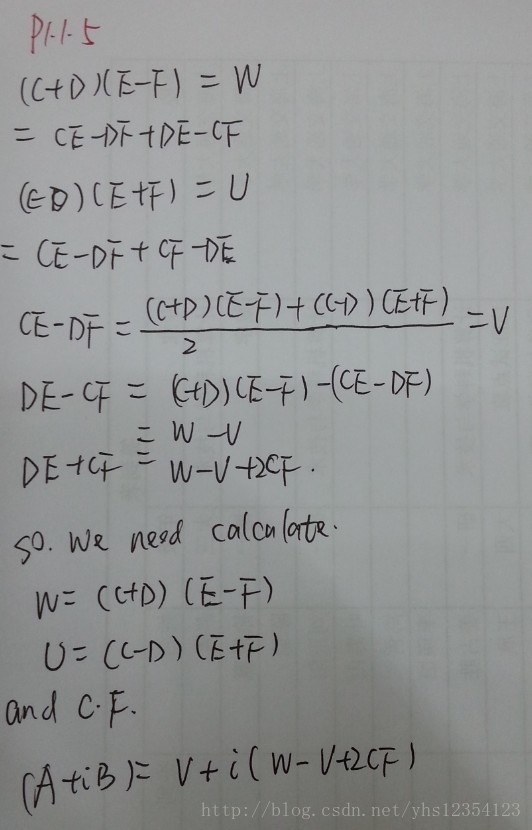 P1.1.5
(C+D)(E-F) = W
= CE-DF+DE-CF
(C-D)(E+F) = U
= CE-DF+CF-DE
CE-DF = ((C+D)(E-F)+(C-D)(E+F))/2 = V
DE-CF = (C+D)(E-F)-(CE-DF)
= W-V
DE+CF = W-V+2CF.
so. we need calculate.
W= (C+D) (E-F)
U= (C-D) (E+F)
and C.F.
(A+iB)= V+i(W-V+2CF)
http://blog.csdn.net/yhs12354123